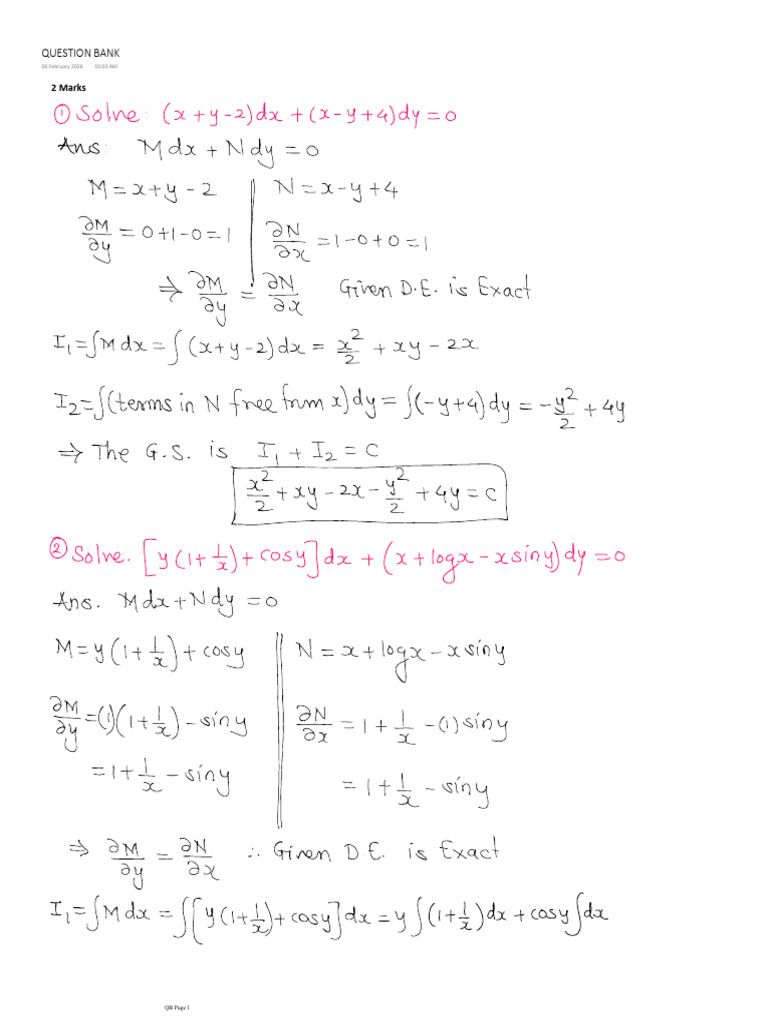 QUESTION BANK
06 February 2026 10:03 AM
2 Marks
① Solve: (x+y-2)dx+(x-y+4)dy=0
Ans: Mdx+Ndy=0
M=x+y-2 || N=x-y+4
∂M/∂y = 0+1-0=1 || ∂N/∂x = 1-0+0=1
⇒ ∂M/∂y = ∂N/∂x Given D.E. is Exact
I₁=∫Mdx=∫(x+y-2)dx = x²/2 + xy - 2x
I₂=∫(terms in N free from x)dy=∫(-y+4)dy=-y²/2+4y
⇒ The G.S. is I₁ + I₂ = C
x²/2+xy-2x-y²/2+4y=c
② Solve. [y(1+1/x)+cosy]dx+(x+logx-xsiny)dy=0
Ans. Mdx+Ndy=0
M=y(1+1/x)+cosy || N=x+logx-xsiny
∂M/∂y=(1)(1+1/x)-siny || ∂N/∂x=1+1/x-(1)siny
=1+1/x-siny || =1+1/x-siny
⇒ ∂M/∂y=∂N/∂x ∴ Given D.E. is Exact
I₁=∫Mdx=∫[y(1+1/x)+cosy]dx=y∫(1+1/x)dx+cosy∫dx
QB Page 1